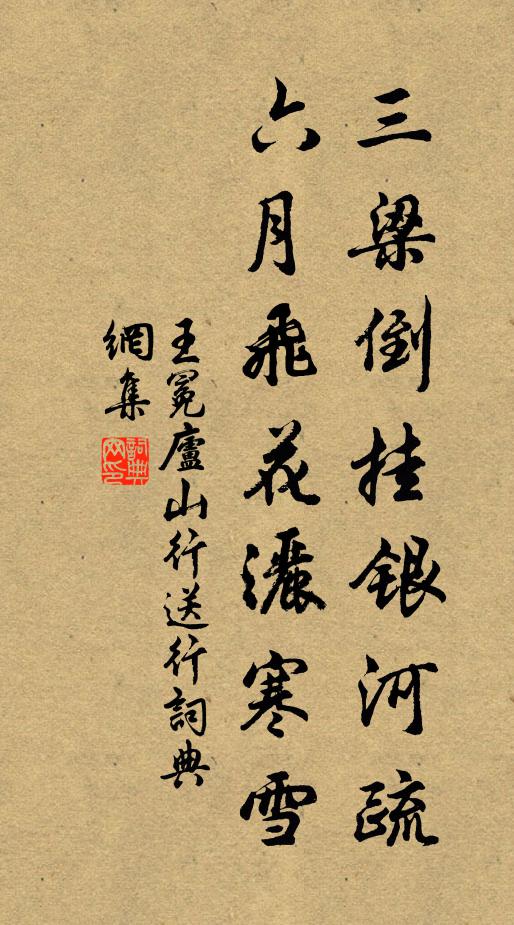 三梁倒挂銀河疏
六月飛花灑寒雪
王冕廬山行送行詞典
網集
詞典網印